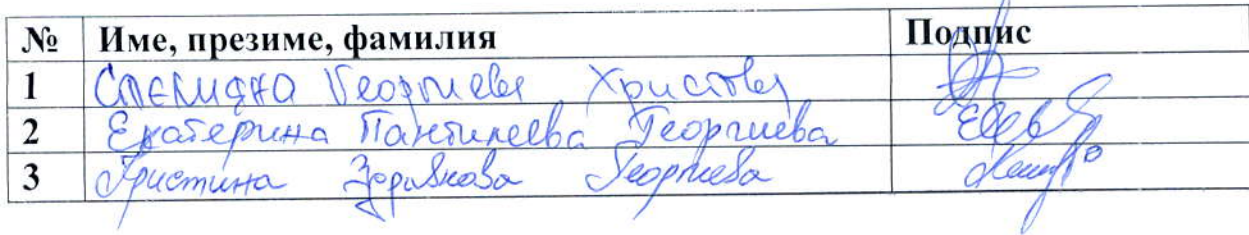 № Име, презиме, фамилия Подпис
1 Стелияна Георгиева Христова
2 Екатерина Пантилеева Георгиева
3 Християна Здравкова Георгиева